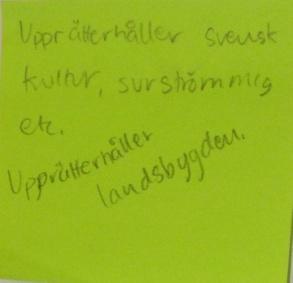 Upprätterhåller svensk
kultur, surströmming
etc.
Upprätterhåller
landsbygden.